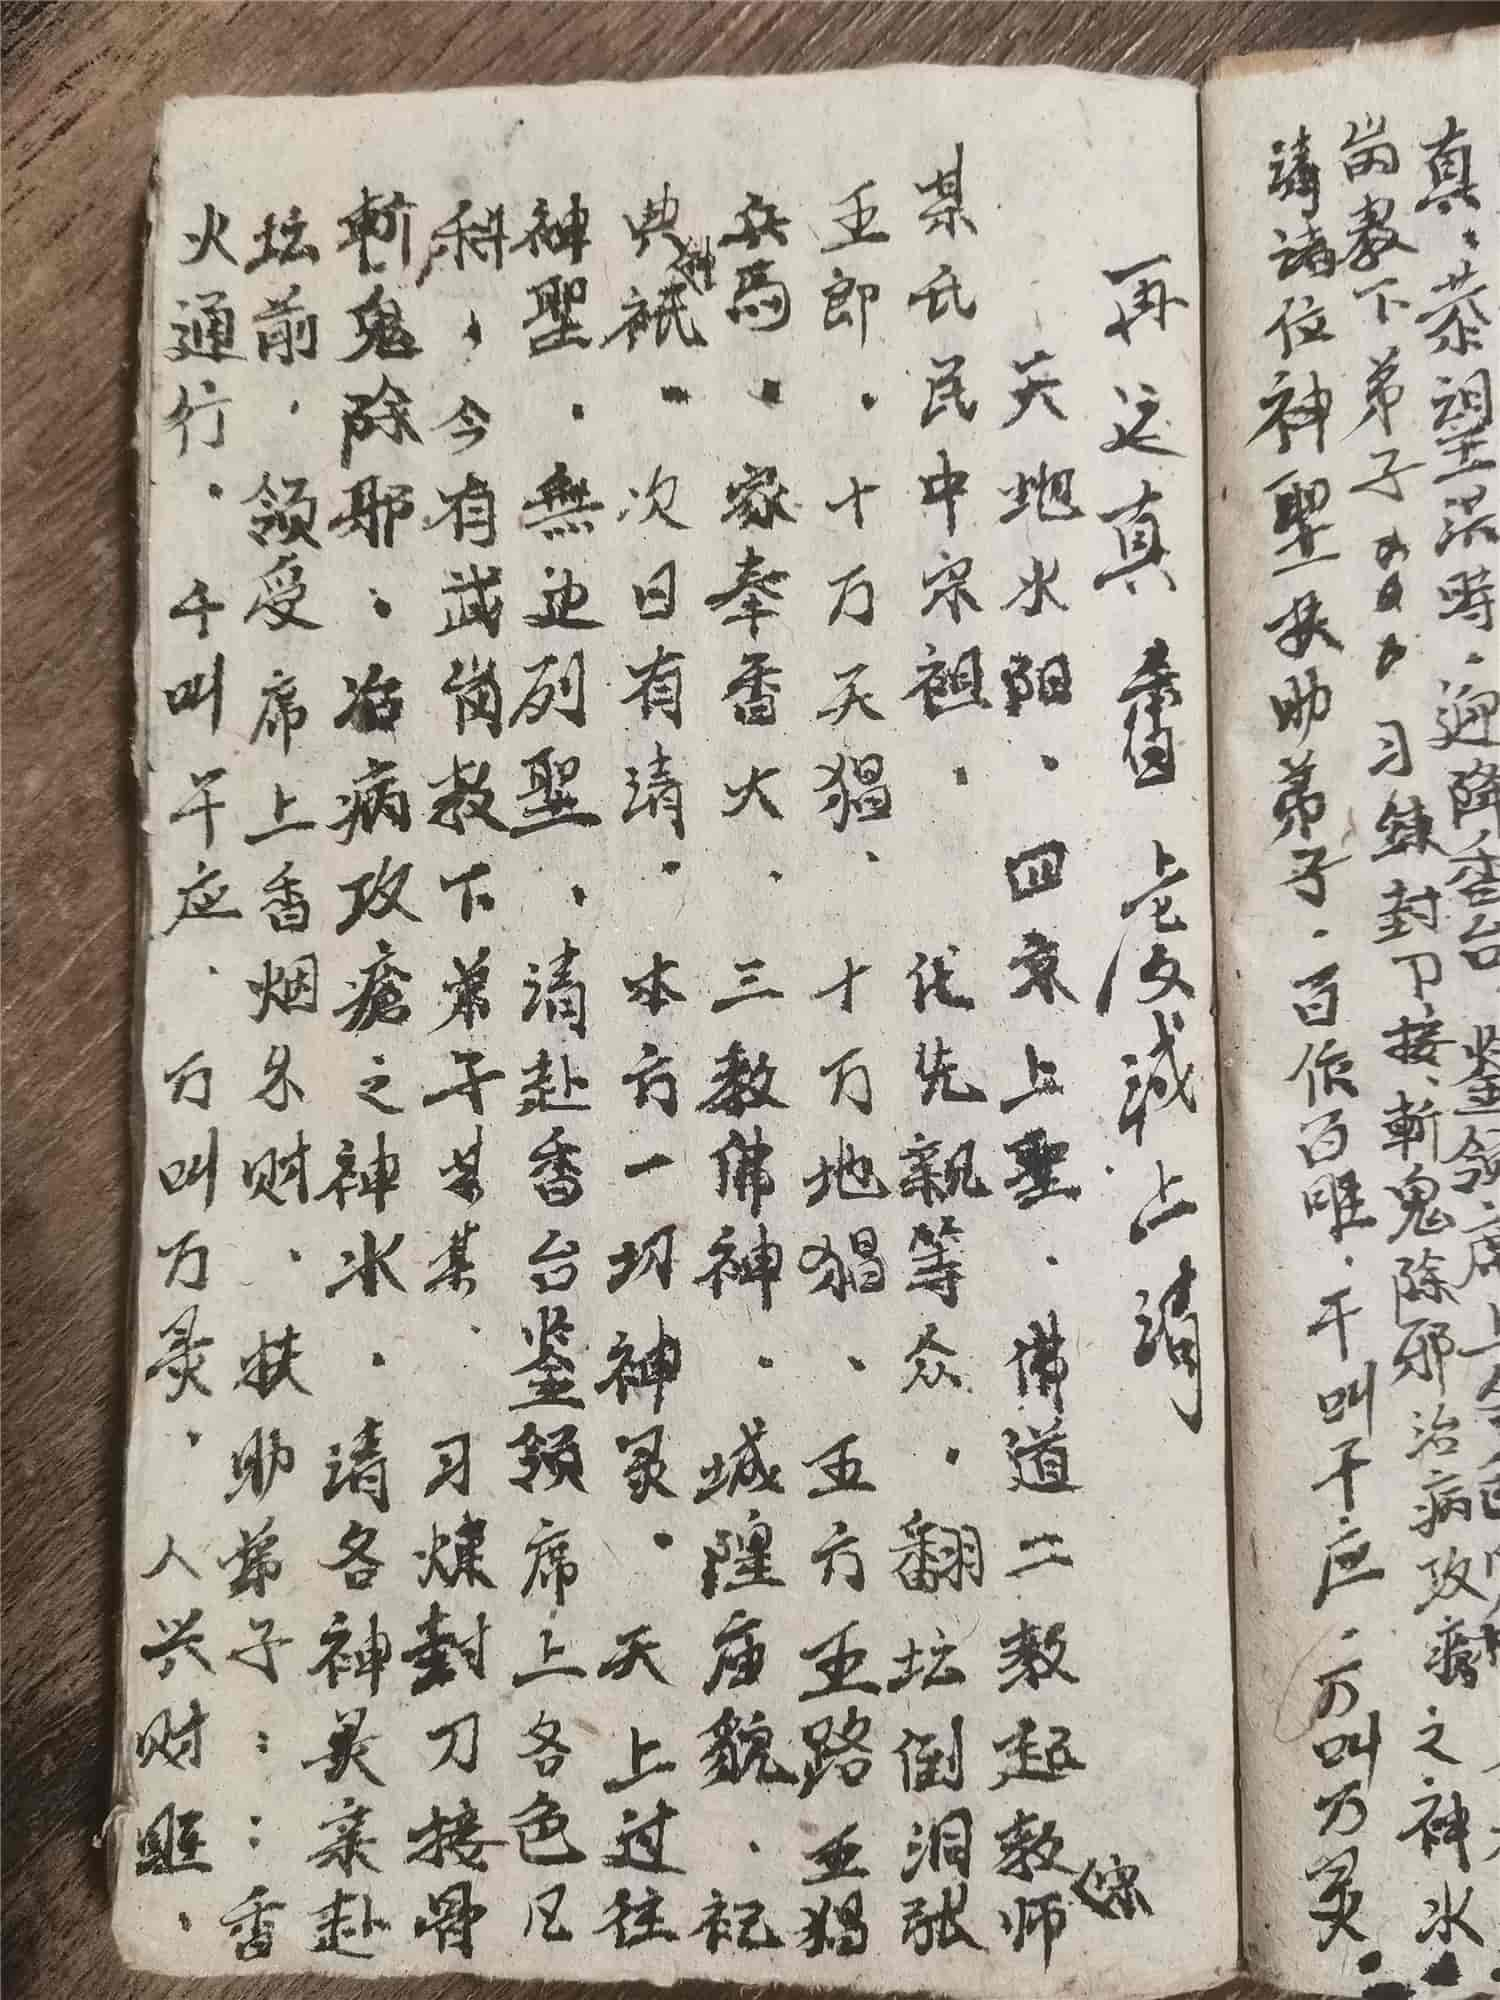 真．恭望洪時．迎降香台．鉴领席上
岗教下弟子 习鍊封刀接．斬鬼除邪治病攻瘡之神水．
請諸位神聖扶助弟子．百作百唯．千叫千应．万叫万灵．
再运真香 虔誠上請
天地水阳．四京上聖．佛道二教起教师
宗
某氏民中宗祖．代先親等众．翻坛倒洞張
五郎．十万天猖．十万地猖．五方五路五猖
兵馬．家奉香火．三教佛神．城隍庙貌．祀
典神祇．次日有請．本方一切神灵．天上过往
神聖．無边列聖．請赴香台鉴领席上各色凡
科，今有武岗教下弟子某某．习煉封刀接骨
斬鬼除邪．治病攻瘡之神水．請各神灵亲赴
坛前．领受席上香烟 财．扶助弟子：：香
火通行．千叫千应．万叫万灵．人兴财旺．